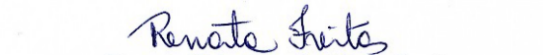 Renata Freitas